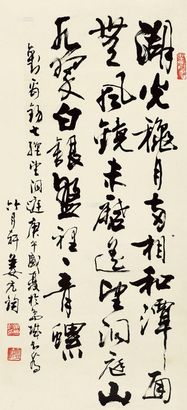 湖光穐月兩相和潭面
無風鏡未磨遥望洞庭山
水翠白銀盤裡一青螺
劉禹錫七絶望洞庭庚午盛夏於